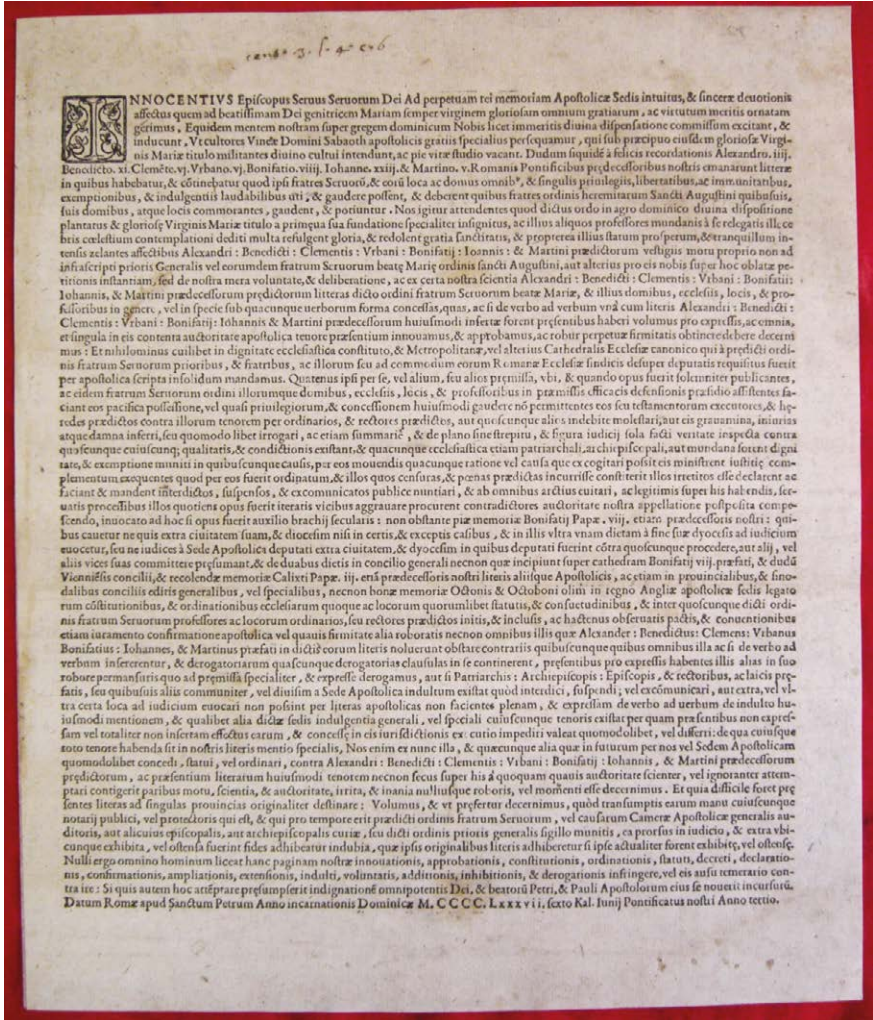 INNOCENTIVS Epiſcopus Seruus Seruorum Dei Ad perpetuam rei memoriam Apoſtolicæ Sedis intuitus, & ſinceræ deuotionis
affectus quem ad beatiſſimam Dei genitricem Mariam ſemper virginem glorioſam omnium gratiarum, ac virtutum meritis ornatam
gerimus. Equidem mentem noſtram ſuper gregem dominicum Nobis licet immeritis diuina diſpenſatione commiſſum excitant, &
inducunt, Vt cultores Vineæ Domini Sabaoth apoſtolicis gratiis ſpecialius perſequamur, qui ſub præcipuo eiuſdem glorioſæ Virgi-
nis Mariæ titulo militantes diuino cultui intendunt, ac pie vitæ ſtudio vacant. Dudum ſiquidē à felicis recordationis Alexandro. iiij.
Benedicto. xi. Clemēte. vj. Vrbano. vj. Bonifatio. viiij. Iohanne. xxiij. & Martino. v. Romanis Pontificibus prędeceſſoribus noſtris emanarunt litteræ
in quibus habebatur, & cōtinebatur quod ipſi fratres Seruorū, & eorū loca ac domus omnib°, & ſingulis priuilegiis, libertatibus, ac immunitatibus,
exemptionibus, & indulgentiis laudabilibus uti, & gaudere poſſent, & deberent quibus fratres ordinis heremitarum Sancti Auguſtini quibuſuis,
ſuis domibus, atque locis commorantes, gaudent, & potiuntur. Nos igitur attendentes quod dictus ordo in agro dominico diuina diſpoſitione
plantatus & glorioſę Virginis Mariæ titulo a primęua ſua fundatione ſpecialiter inſignitus, ac illius aliquos profeſſores mundanis à ſe relegatis illece
bris cœleſtium contemplationi dediti multa refulgent gloria, & redolent gratia ſanctitatis, & propterea illius ſtatum proſperum, & tranquillum in-
tenſis zelantes affectibus Alexandri : Benedicti : Clementis : Vrbani : Bonifatij : Ioannis : & Martini prædictorum veſtigiis motu proprio non ad
infraſcripti prioris Generalis vel eorumdem fratrum Seruorum beatę Marię ordinis ſancti Auguſtini, aut alterius pro eis nobis ſuper hoc oblatæ pe-
titionis inſtantiam, ſed de noſtra mera voluntate, & deliberatione, ac ex certa noſtra ſcientia Alexandri : Benedicti : Clementis : Vrbani : Bonifatii:
Iohannis, & Martini prædeceſſorum prędictorum litteras dicto ordini fratrum Seruorum beatæ Mariæ, & illius domibus, eccleſiis, locis, & pro-
feſſoribus in genere, vel in ſpecie ſub quacunque uerborum forma conceſſas, quas, ac ſi de verbo ad verbum vnà cum literis Alexandri : Benedicti :
Clementis : Vrbani : Bonifatij : Iohannis & Martini prædeceſſorum huiuſmodi inſertæ forent pręſentibus haberi volumus pro expreſſis, ac omnia,
et ſingula in eis contenta auctoritate apoſtolica tenore præſentium innouamus, & approbamus, ac robur perpetuæ firmitatis obtinere debere decerni
mus : Et nihilominus cuilibet in dignitate eccleſiaſtica conſtituto, & Metropolitanæ, vel alterius Cathedralis Eccleſiæ canonico qui à prędicti ordi-
nis fratrum Seruorum prioribus, & fratribus, ac illorum ſeu ad commodum eorum Romanæ Eccleſiæ ſindicis deſuper deputatis requiſitus fuerit
per apoſtolica ſcripta inſolidum mandamus. Quatenus ipſi per ſe, vel alium, ſeu alios premiſſa, vbi, & quando opus fuerit ſolemniter publicantes,
ac eidem fratrum Seruorum ordini illorumque domibus, eccleſiis, locis, & profeſſoribus in præmiſſis efficacis defenſionis præſidio aſſiſtentes fa-
ciant eos pacifica poſſeſſione, vel quaſi priuilegiorum, & conceſſionem huiuſmodi gaudere nō permittentes eos ſeu teſtamentorum executores, & hę-
redes prædictos contra illorum tenorem per ordinarios, & rectores prædictos, aut quoſcunque alios indebite moleſtari, aut eis grauamina, iniurias
atque damna inferri, ſeu quomodo libet irrogari, ac etiam ſummariè, & de plano ſine ſtrepitu, & figura iudicij ſola facti veritate inſpecta contra
quoſcunque cuiuſcunq; qualitatis, & condictionis exiſtant, & quacunque eccleſiaſtica etiam patriarchali, archiepiſcopali, aut mundana forent digni
tate, & exemptione muniti in quibuſcunque cauſis, per eos mouendis quacunque ratione vel cauſa quæ excogitari poſſit eis miniſtrent iuſtitię com-
plementum exequentes quod per eos fuerit ordinatum, & illos quos cenſuras, & pœnas prædictas incurriſſe conſtiterit illos irretitos eſſe declarent ac
faciant & mandent interdictos, ſuſpenſos, & excomunicatos publice nuntiari, & ab omnibus arctius euitari, ac legitimis ſuper his habendis, ſer-
uatis proceſſibus illos quotiens opus fuerit iteratis vicibus aggrauare procurent contradictores auctoritate noſtra appellatione poſtpoſita compe-
ſcendo, inuocato ad hoc ſi opus fuerit auxilio brachij ſecularis : non obſtante piæ memoriæ Bonifatij Papæ. viij. etiam prædeceſſoris noſtri : qui-
bus cauetur ne quis extra ciuitatem ſuam, & diocęſim niſi in certis, & exceptis caſibus, & in illis vltra vnam dietam à fine ſuæ dyocęſis ad iudicium
euocetur, ſeu ne iudices à Sede Apoſtolica deputati extra ciuitatem, & dyoceſim in quibus deputati fuerint cōtra quoſcunque procedere, aut alij, vel
aliis vices ſuas committere pręſumant, & de duabus dictis in concilio generali necnon quæ incipiunt ſuper cathedram Bonifatij viij. præfati, & dudū
Viennēſis concilii, & recolendæ memoriæ Calixti Papæ. iij. etiā prædeceſſoris noſtri literis aliiſque Apoſtolicis, ac etiam in prouincialibus, & ſino-
dalibus conciliis editis generalibus, vel ſpecialibus, necnon bonæ memoriæ Octonis & Octoboni olim in regno Angliæ apoſtolicæ ſedis legato
rum cōſtitutionibus, & ordinationibus eccleſiarum quoque ac locorum quorumlibet ſtatutis, & conſuetudinibus, & inter quoſcunque dicti ordi-
nis fratrum Seruorum profeſſores ac locorum ordinarios, ſeu rectores prædictos initis, & incluſis, ac hactenus obſeruatis pactis, & conuentionibus
etiam iuramento confirmatione apoſtolica vel quauis firmitate alia roboratis necnon omnibus illis quæ Alexander : Benedictus : Clemens : Vrbanus
Bonifatius : Iohannes, & Martinus præfati in dictis eorum literis noluerunt obſtare contrariis quibuſcunque quibus omnibus illa ac ſi de verbo ad
verbum inſererentur, & derogatoriarum quaſcunque derogatorias clauſulas in ſe continerent, pręſentibus pro expreſſis habentes illis alias in ſuo
robore permanſuris quo ad pręmiſſa ſpecialiter, & expreſſe derogamus, aut ſi Patriarchis : Archiepiſcopis : Epiſcopis, & rectoribus, ac laicis prę-
fatis, ſeu quibuſuis aliis communiter, vel diuiſim a Sede Apoſtolica indultum exiſtat quòd interdici, ſuſpendi; vel excōmunicari, aut extra, vel vl-
tra certa loca ad iudicium euocari non poſſint per literas apoſtolicas non facientes plenam, & expreſſam de verbo ad uerbum de indulto hu-
iuſmodi mentionem, & qualibet alia dictæ ſedis indulgentia generali, vel ſpeciali cuiuſcunque tenoris exiſtat per quam præſentibus non expreſ-
ſam vel totaliter non inſertam effectus earum, & conceſſę in eis iuriſdictionis ex: cutio impediri valeat quomodolibet, vel differri: de qua cuiuſque
toto tenore habenda ſit in noſtris literis mentio ſpecialis, Nos enim ex nunc illa, & quæcunque alia quæ in futurum per nos vel Sedem Apoſtolicam
quomodolibet concedi, ſtatui, vel ordinari, contra Alexandri : Benedicti : Clementis : Vrbani : Bonifatij : Iohannis, & Martini prædeceſſorum
prędictorum, ac præſentium literarum huiuſmodi tenorem necnon ſecus ſuper his à quoquam quauis auctoritate ſcienter, vel ignoranter attem-
ptari contigerit paribus motu, ſcientia, & auctoritate, irrita, & inania nulliuſque roboris, vel momēti eſſe decernimus. Et quia difficile foret prę
ſentes literas ad ſingulas prouincias originaliter deſtinare : Volumus, & vt prefertur decernimus, quòd tranſumptis earum manu cuiuſcunque
notarij publici, vel protectoris qui eſt, & qui pro tempore erit prædicti ordinis fratrum Seruorum, vel cauſarum Cameræ Apoſtolicæ generalis au-
ditoris, aut alicuius epiſcopalis, aut archiepiſcopalis curiæ, ſeu dicti ordinis prioris generalis ſigillo munitis, ea prorſus in iudicio, & extra vbi-
cunque exhibita, vel oſtenſa fuerint fides adhibeatur indubia, quæ ipſis originalibus literis adhiberetur ſi ipſe actualiter forent exhibitę, vel oſtenſę.
Nulli ergo omnino hominum liceat hanc paginam noſtræ innouationis, approbationis, conſtitutionis, ordinationis, ſtatuti, decreti, declaratio-
nis, confirmationis, ampliationis, extenſionis, indulti, voluntatis, additionis, inhibitionis, & derogationis infringere, vel eis auſu temerario con-
tra ire : Si quis autem hoc attēptare pręſumpſerit indignationē omnipotentis Dei, & beatorū Petri, & Pauli Apoſtolorum eius ſe nouerit incurſurū.
Datum Romæ apud Sanctum Petrum Anno incarnationis Dominicæ M. CCCC. Lxxxvii. ſexto Kal. Iunij Pontificatus noſtri Anno tertio.